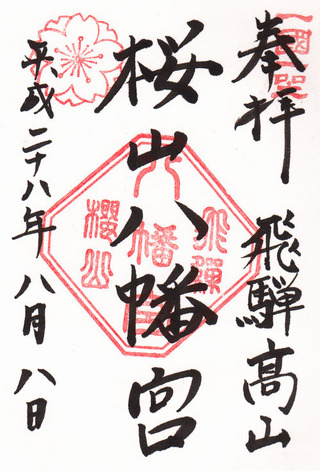 奉拝
飛騨高山
桜山八幡宮
平成二十八年八月八日
飛騨
八幡宮
櫻山